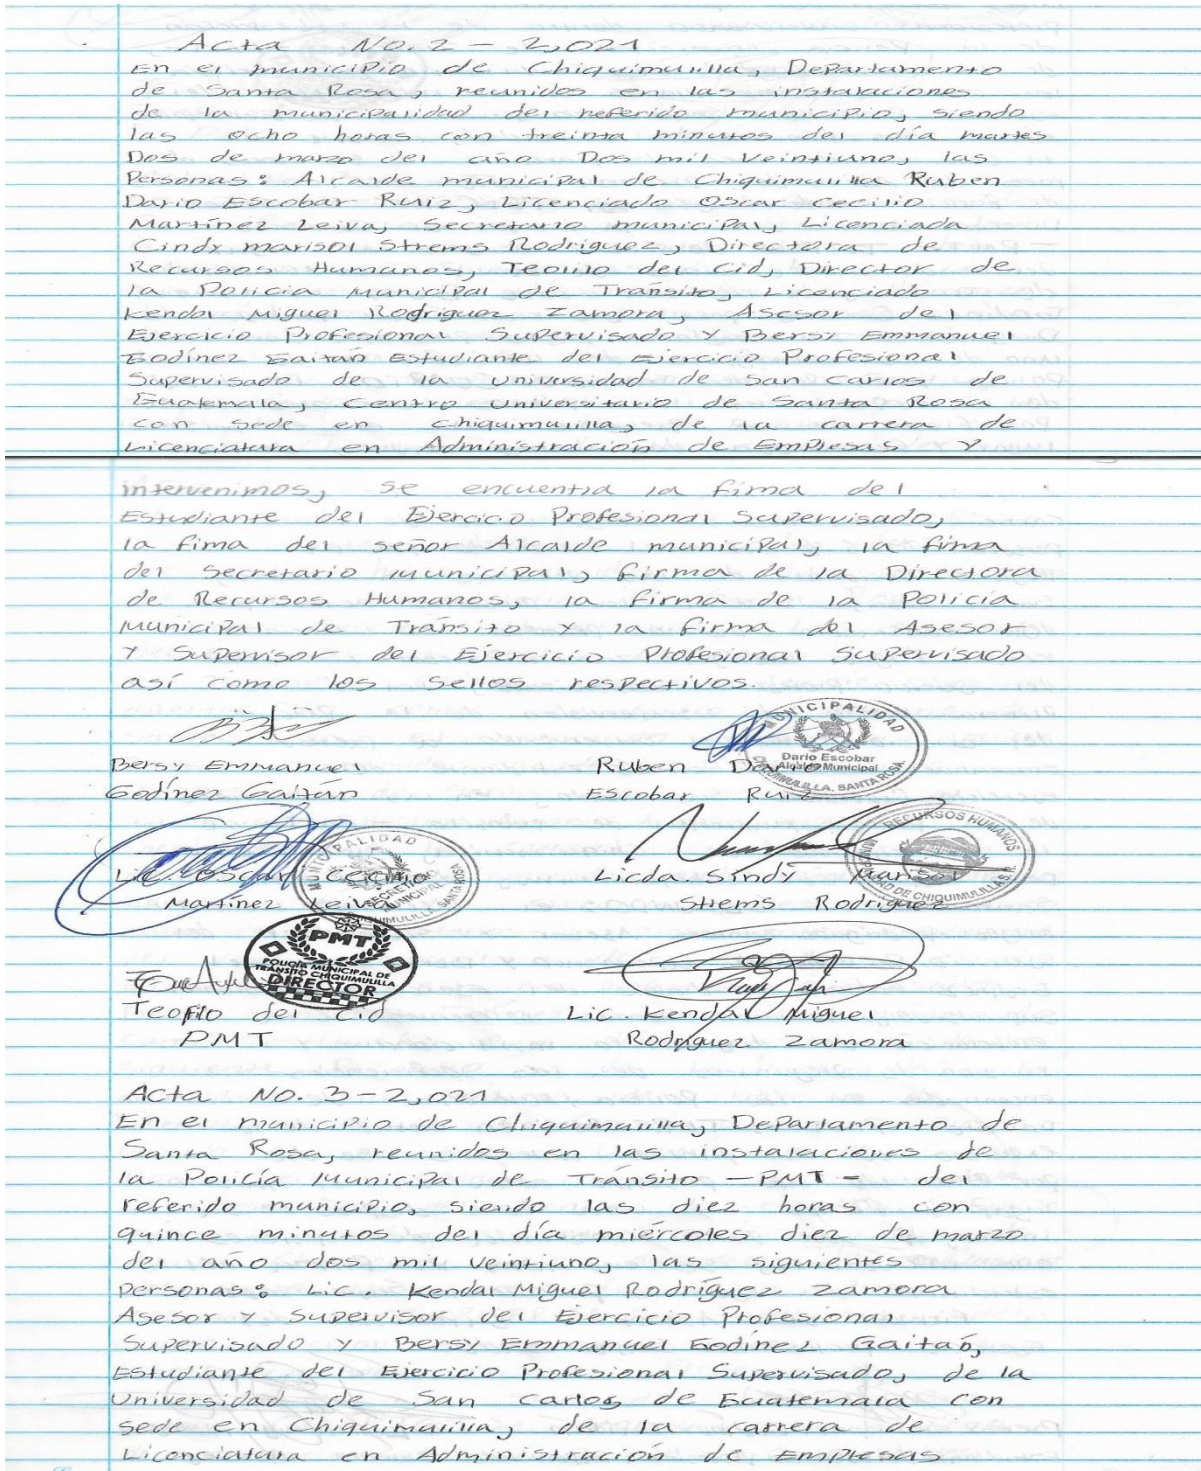 Acta No. 2 - 2,021
En el municipio de Chiquimulilla, Departamento
de Santa Rosa, reunidos en las instalaciones
de la municipalidad del referido municipio, siendo
las ocho horas con treinta minutos del día martes
Dos de marzo del año Dos mil Veintiuno, las
Personas: Alcalde municipal de Chiquimulilla Ruben
Dario Escobar Ruiz, Licenciado Oscar Cecilio
Martínez Leiva, Secretario municipal, Licenciada
Cindy marisol Strems Rodriguez, Directora de
Recursos Humanos, Teofilo del Cid, Director de
la Policia Municipal de Tránsito, Licenciado
Kendal Miguel Rodriguez Zamora, Asesor del
Ejercicio Profesional Supervisado Y Bersy Emmanuel
Godínez Gaitán Estudiante del Ejercicio Profesional
Supervisado de la Universidad de San Carlos de
Guatemala, Centro Universitario de Santa Rosa
con sede en Chiquimulilla, de la carrera de
Licenciatura en Administración de Empresas Y
intervenimos, se encuentra la fima del
Estudiante del Ejercicio Profesional Supervisado,
la fima del señor Alcalde municipal, la firma
del Secretario Municipal, firma de la Directora
de Recursos Humanos, la firma de la Policía
Municipal de Tránsito Y la firma del Asesor
Y Supervisor del Ejercicio Profesional Supervisado
así como los Sellos respectivos.
MUNICIPALIDAD
Dario Escobar
Alcalde Municipal
CHIQUIMULILLA, SANTA ROSA
Bersy Emmanuel
Godínez Gaitán
Ruben Dario
Escobar Ruiz
MUNICIPALIDAD
SECRETARIO
MUNICIPAL
CHIQUIMULILLA, SANTA ROSA
RECURSOS HUMANOS
DE CHIQUIMULILLA S.R.
Lic. Oscar Cecilio
Martínez Leiva
Licda. Sindy Marisol
Strems Rodriguez
PMT
POLICIA MUNICIPAL DE
TRÁNSITO CHIQUIMULILLA
DIRECTOR
Teofilo del Cid
PMT
Lic. Kendal Miguel
Rodriguez Zamora
Acta No. 3 - 2,021
En el municipio de Chiquimulilla, Departamento de
Santa Rosa, reunidos en las instalaciones de
la Policía Municipal de Tránsito - PMT - del
referido municipio, siendo las diez horas con
quince minutos del día miércoles diez de marzo
del año dos mil veintiuno, las siguientes
Personas: Lic. Kendal Miguel Rodríguez Zamora
Asesor Y Supervisor del Ejercicio Profesional
Supervisado Y Bersy Emmanuel Godínez Gaitán,
Estudiante del Ejercicio Profesional Supervisado, de la
Universidad de San Carlos de Guatemala con
sede en Chiquimulilla, de la carrera de
Licenciatura en Administración de Empresas